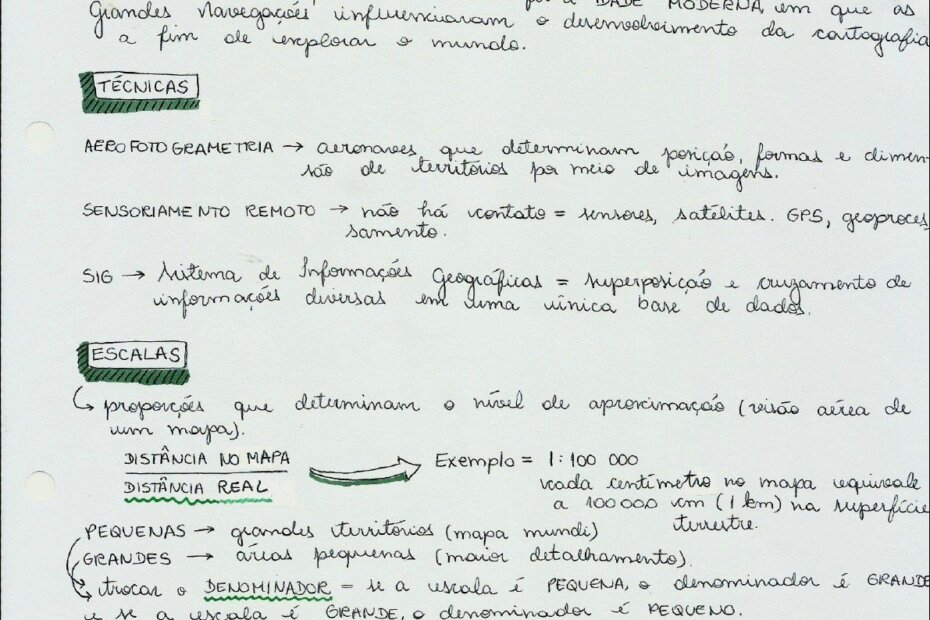 IDADE MODERNA, em que as
Grandes Navegações influenciaram o desenvolvimento da cartografia
a fim de explorar o mundo.
TÉCNICAS
AEROFOTOGRAMETRIA → aeronaves que determinam posição, formas e dimen-
são de territórios por meio de imagens.
SENSORIAMENTO REMOTO → não há contato = sensores, satélites. GPS, geoproces
samento.
SIG → Sistema de Informações Geográficas = superposição e cruzamento de
informações diversas em uma única base de dados.
ESCALAS
↳ proporções que determinam o nível de aproximação (visão aérea de
um mapa).
DISTÂNCIA NO MAPA
DISTÂNCIA REAL
Exemplo = 1:100 000
cada centímetro no mapa equivale
a 100 000 cm (1 km) na superfície
terrestre.
PEQUENAS → grandes territórios (mapa mundi)
GRANDES → áreas pequenas (maior detalhamento).
trocar o DENOMINADOR = se a escala é PEQUENA, o denominador é GRANDE
e se a escala é GRANDE, o denominador é PEQUENO.